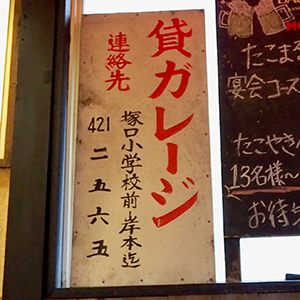 貸ガレージ
連絡先
塚口小学校前岸本迄
421二五六五
たこま
宴会コース
たこやき
13名様〜
お待